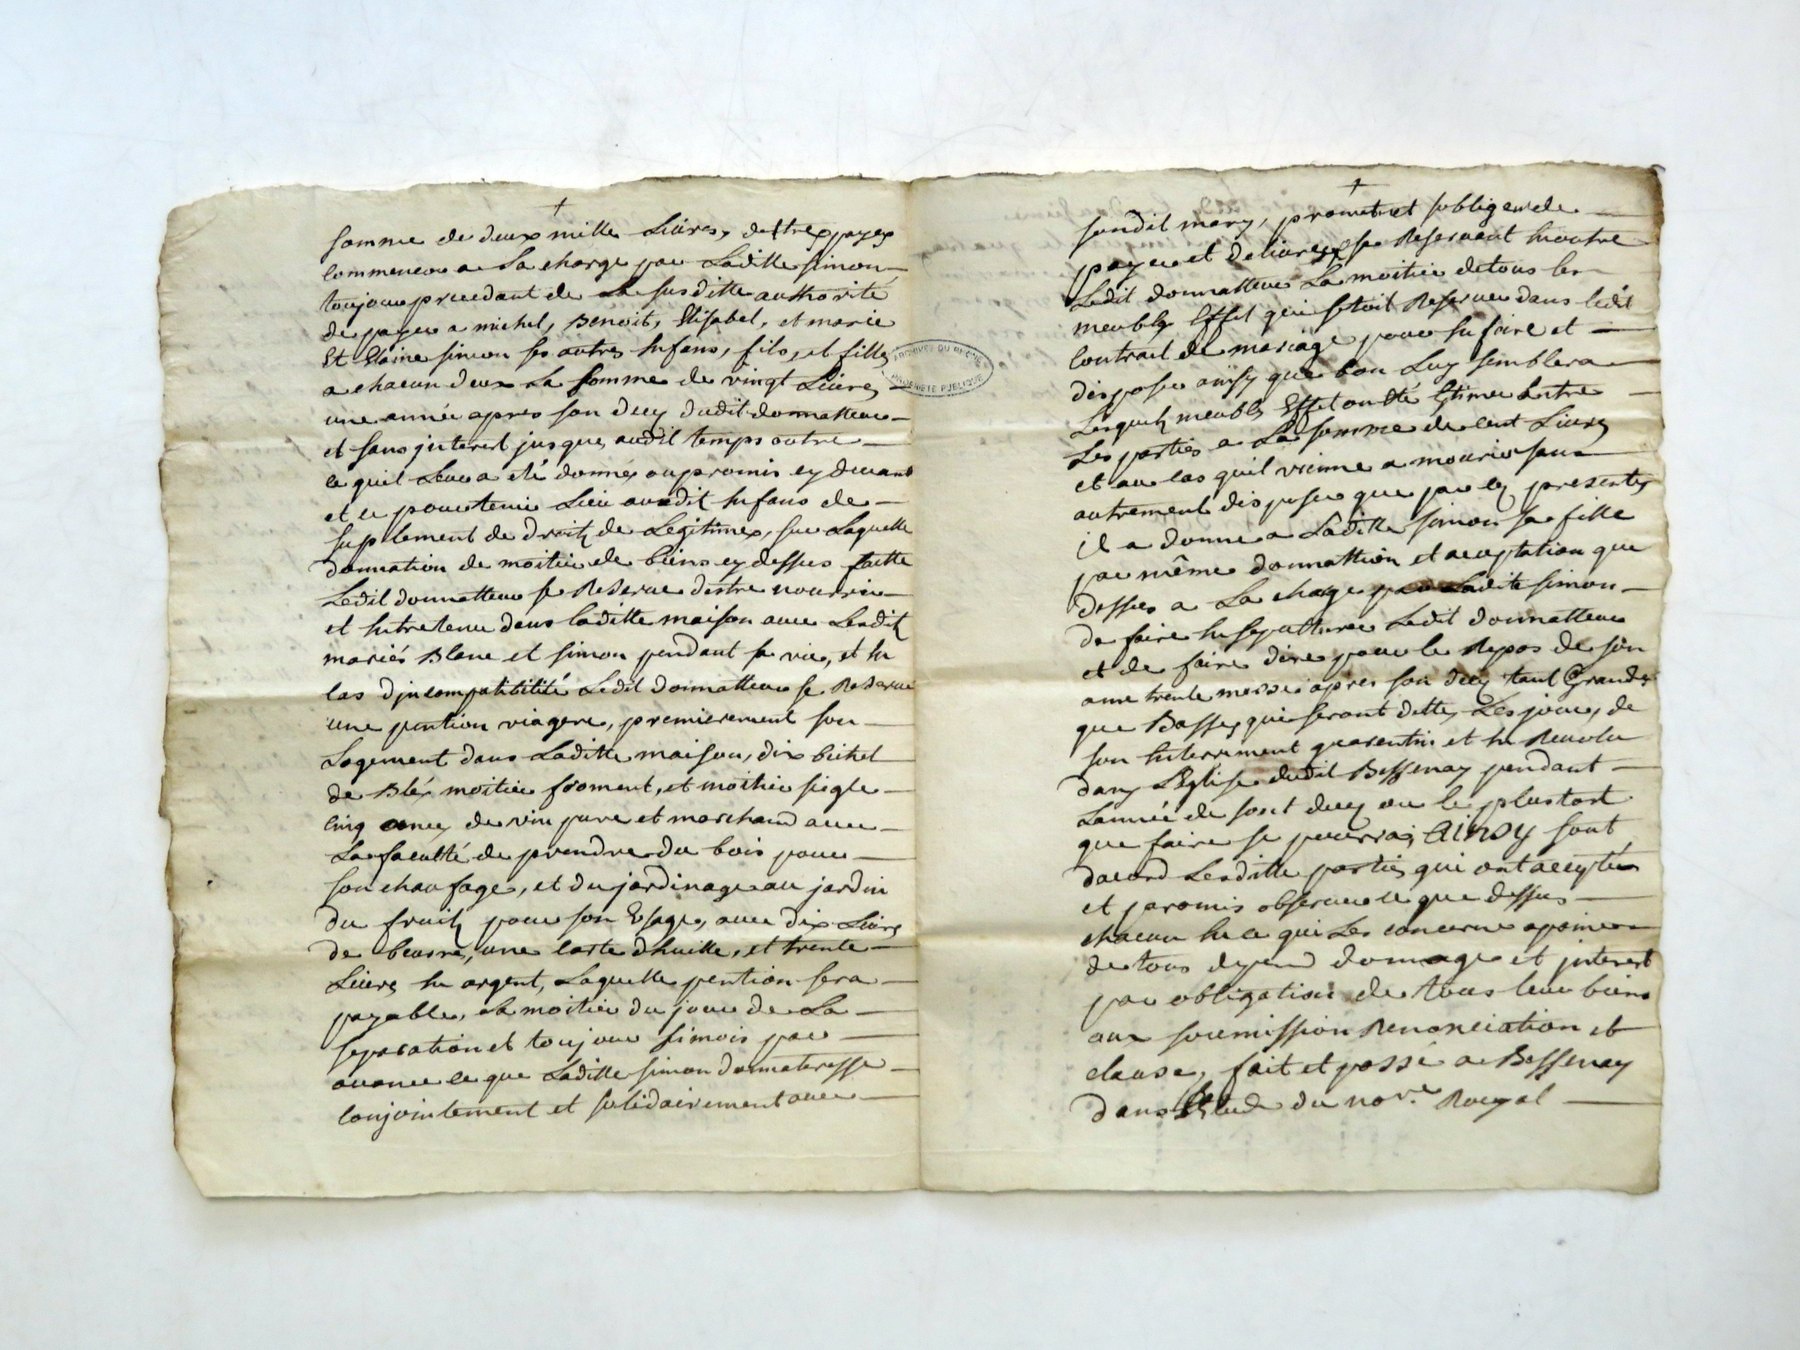 †
somme de deux mille Livres, dettre payes
commencer a La charge par Laditte simon
toujour procedant de La susditte authorité
de payer a michel, Benoit, Elisabet, et marie
Et Claire simon ses autres Enfans, fils, et filles
a chacun deux La somme de vingt Livres
une année apres son decez dudit donnatteur
et sans jnterest jusques audit temps outre
ce quil Leur a eté donnés ou promis cy devant
et ce pour tenir Lieu ausdit Enfans de
suplement de droitz de Legitimes, sur Laquelle
donnation de moitiée de biens cy dessus faitte
Ledit donnatteur se Reserve destre nourrie
et Entretenu dans laditte maison avec Lesditz
mariés Blanc et simon pendant sa vie, et En
cas djncompatibilité Ledit donnatteur se Reserve
une pention viagere, premierement son
Logement dans Laditte maison, dix bichet
de Bléz moitiée froment, et moitiée sigle
cinq anez de vin pure et marchand avec
La faculté de prendre du bois pour
son chaufage, et du jardinage au jardin
du fruitz pour son Usage, avec dix Livres
de beurre, une carte dhuille, et trente
Livres En argent, Laquelle pention sera
payable, La moitiée du jour de La
separation et toujour simois par
avance ce que Laditte simon donnateresse
conjointement et solidairement avec
†
sondit mary, promet et sobligent de
payer et delivrer se Reservent En outre
Ledit donnatteur La moitiée de tous les
meubles Effet qui setoit Reservée dans ledit
contrait de mariage pour En faire et
disposer ainsy que bon Luy semblera
Lesquelz meubles Effet ont Eté Estimer Entre
Les parties a La somme de cent Livres
et au cas quil vienne a mourir sans
autrement disposer que par ces presentes
il a donne a Laditte simon sa fille
par même donnattion et acceptation que
dessus a La charge par Ladite simon
de faire Ensepulturer Ledit donnatteur
et de faire dire pour le Repos de son
ame trente messes apres son decez tant Grandes
que Basses, qui seront dittes Les jour, de
son Enterrement quarentin et En Revolu
dans LEglise dudit Bessenay pendant
Lannée de sont decez ou le plustost
que faire se pourra, Ainsy sont
dacord Lesditte parties qui ont acceptées
et promis observer ce que dessus
chacun En ce qui Les concerne apeine
de tous depend domage et jnterest
par obligation de tous leur biens
aux soumission Renonciation et
clause, fait et passé a Bessenay
dans Etude du no.re Royal
ARCHIVES DU RHÔNE
PROPRIÉTÉ PUBLIQUE